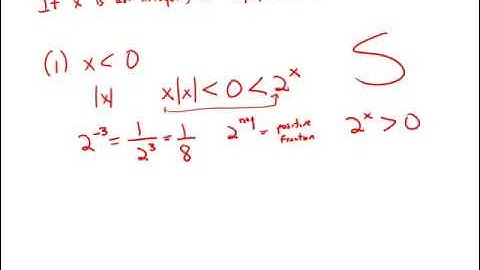 If x is an integer, is
(1) x < 0
|x| x|x| < 0 < 2^x S
2^-3 = 1/2^3 = 1/8 2^neg = positive fraction 2^x > 0